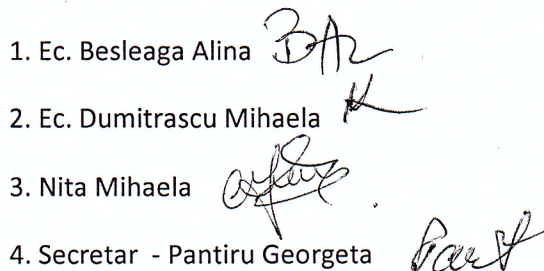 1. Ec. Besleaga Alina
2. Ec. Dumitrascu Mihaela
3. Nita Mihaela
4. Secretar - Pantiru Georgeta